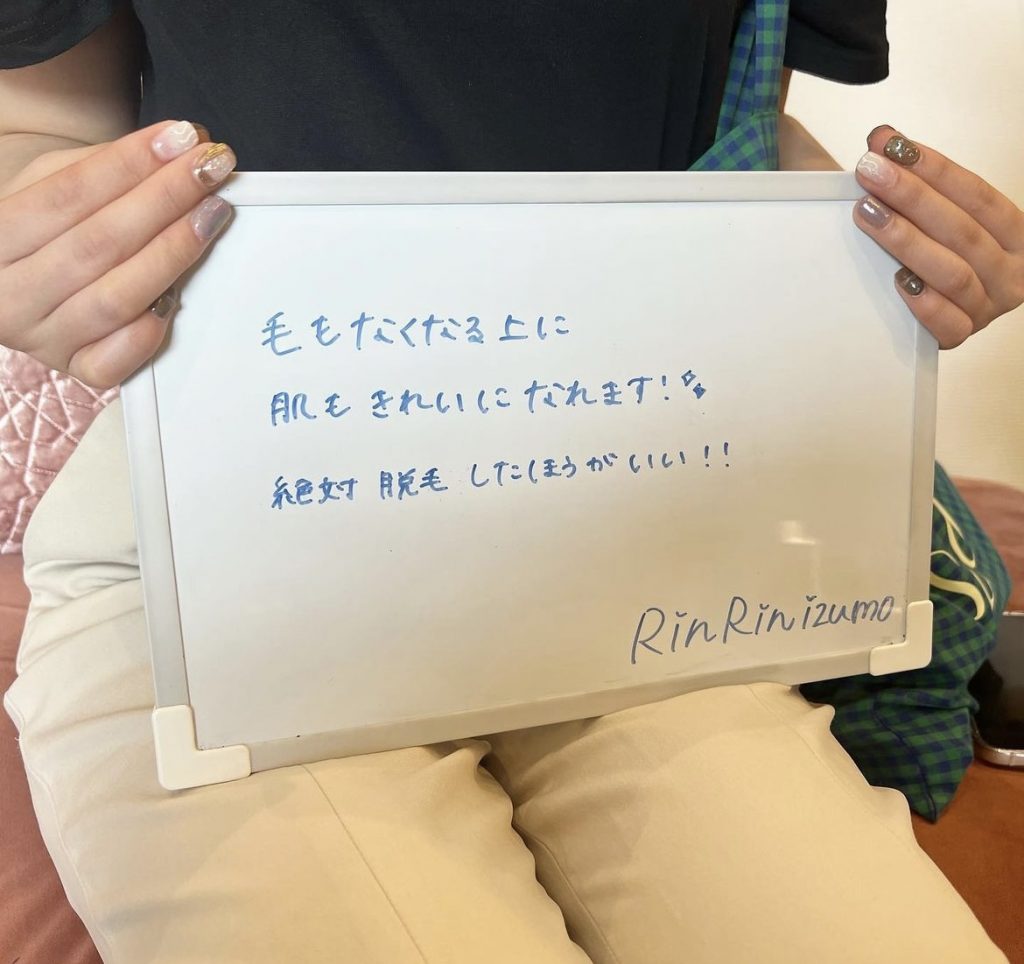 毛もなくなる上に
肌もきれいになれます!✨
絶対脱毛したほうがいい!!
RinRinizumo